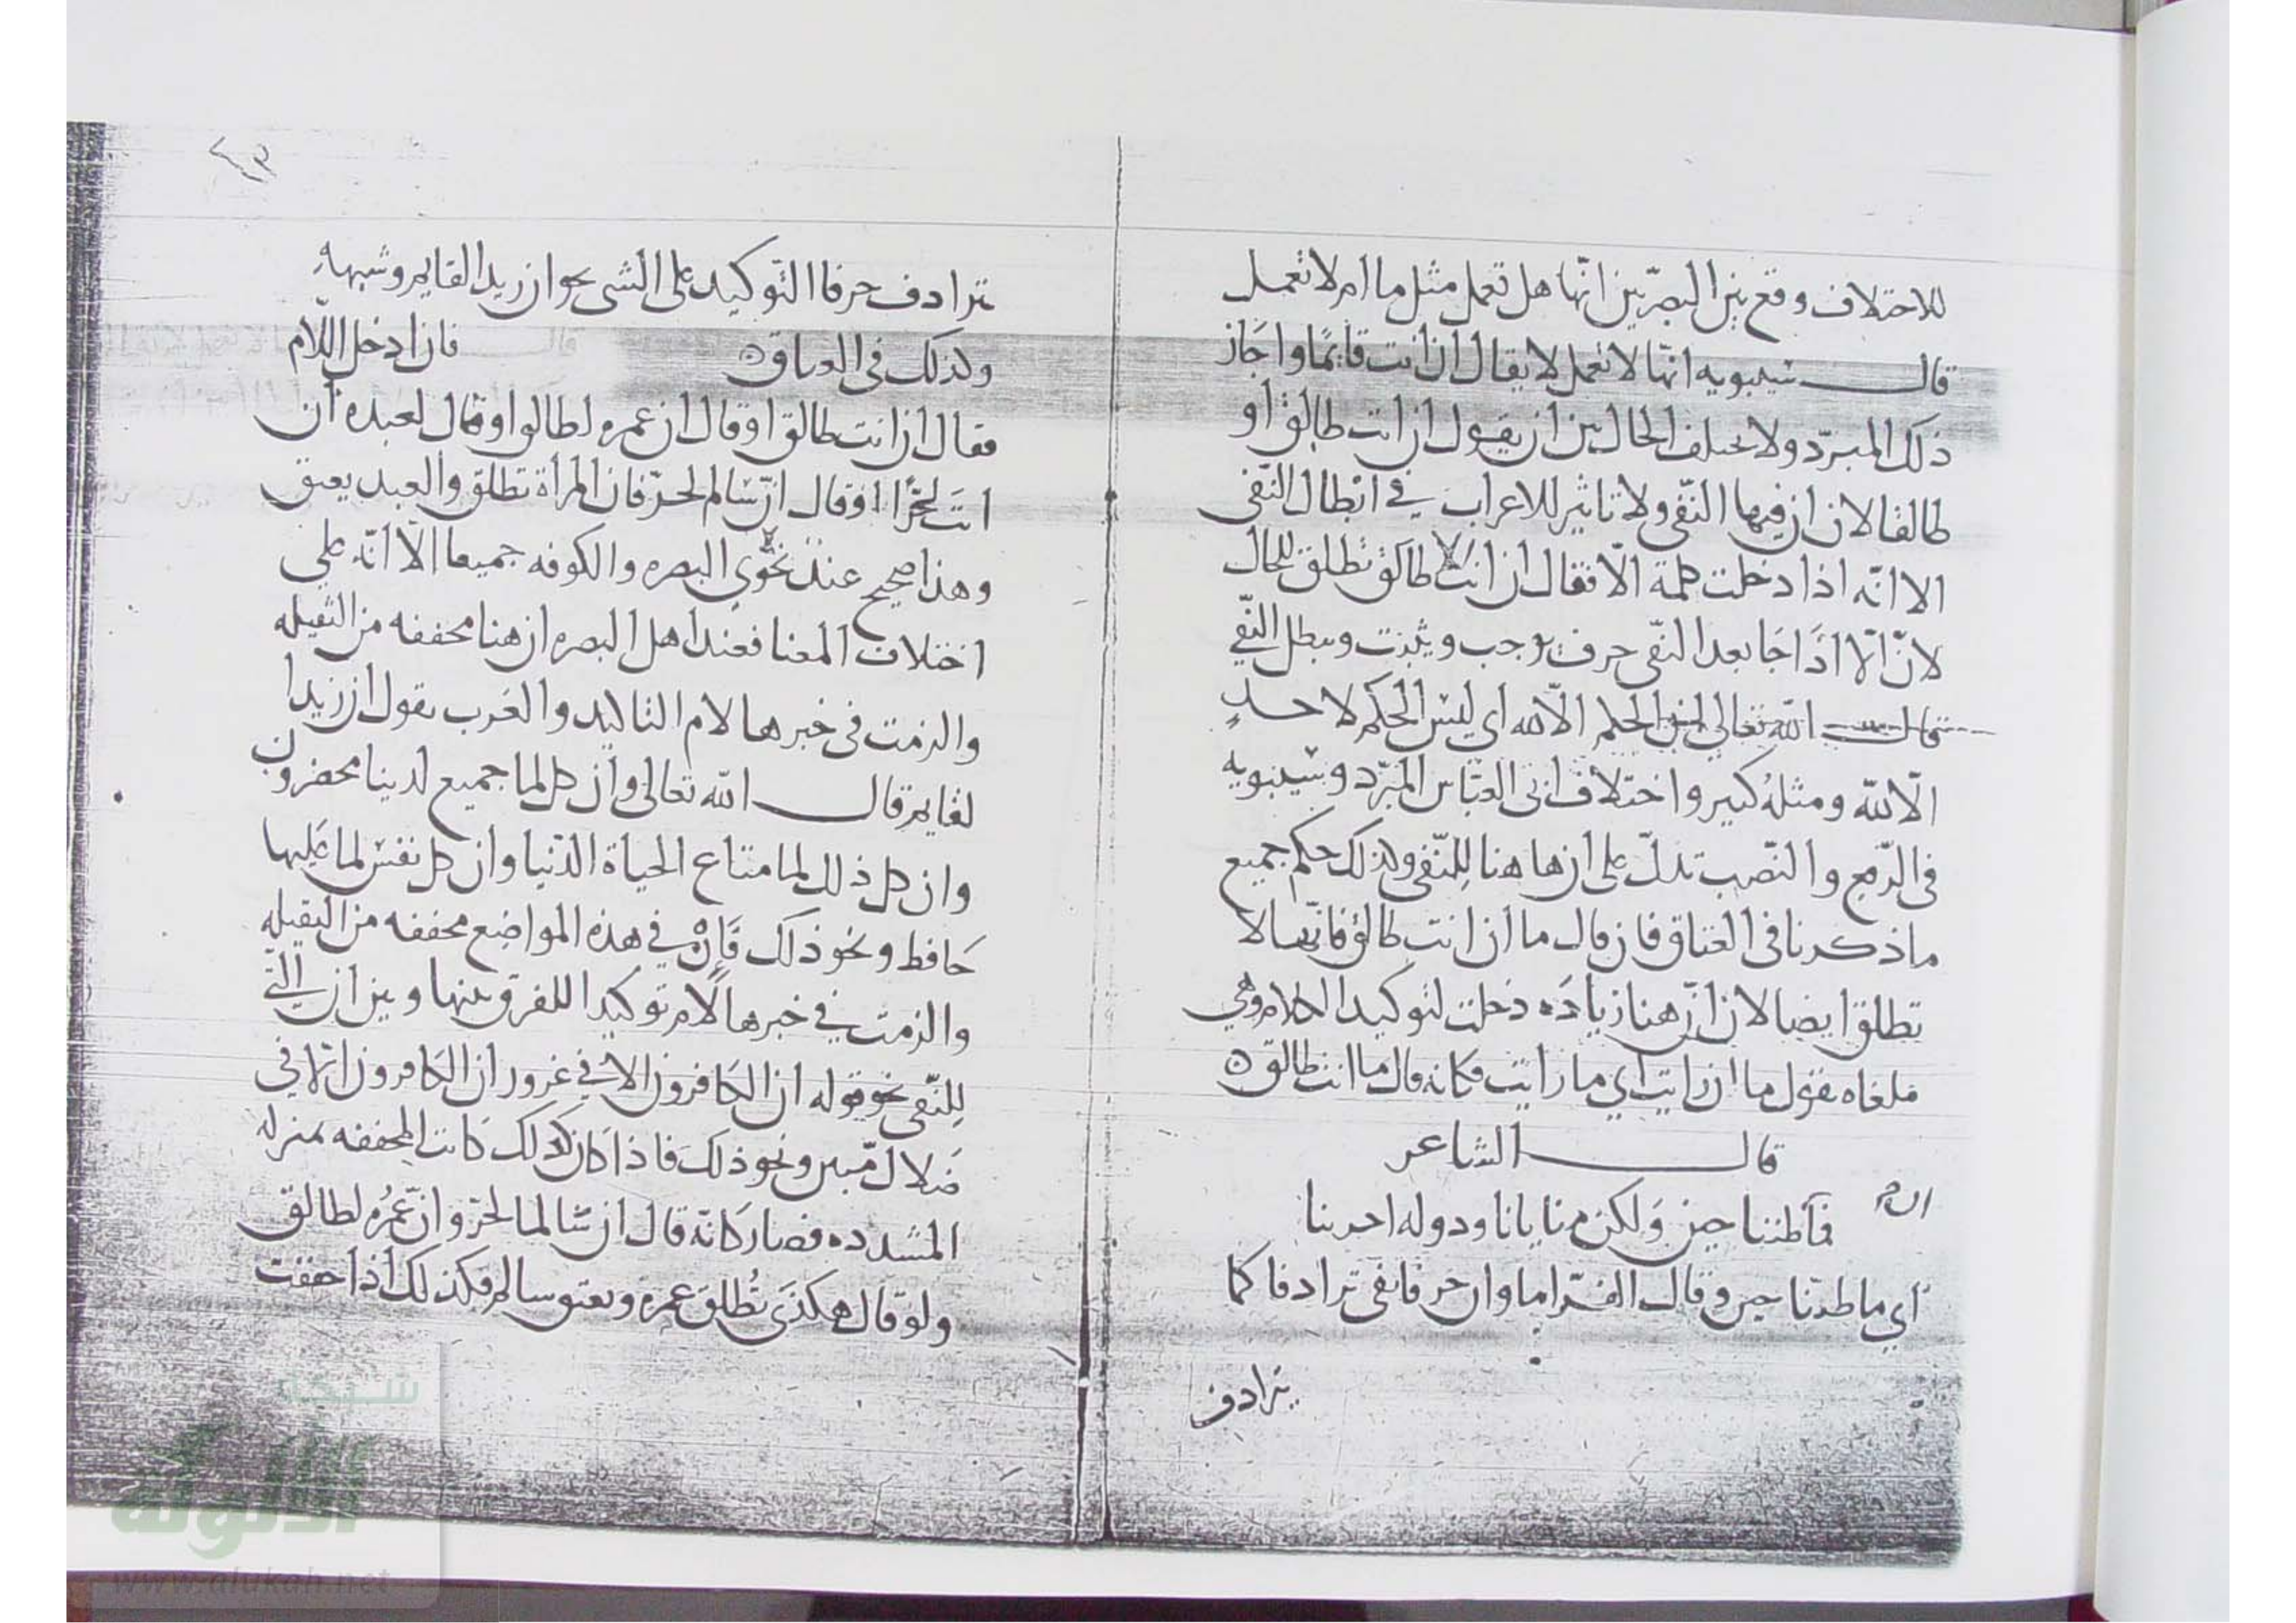 للاختلاف وقع بين البصريين انها هل تعمل مثل ما ام لا تعمل
قال سيبويه انها لا تعمل لا يقال ان انت قايما واجاز
ذلك المبرد ولا يختلف الحال بين ان يقول ان انت طالق او
طالقا لان ان فيها النفى ولا تاثير للاعراب في ابطال النفى
الا انه اذا دخلت كلمة الا فقال ان انت الا طالق تطلق للحال
لان الا اذا جا بعد النفى حرف يوجب ويثبت ويبطل النفي
قال الله تعالى ان الحكم الا لله اي ليس الحكم لاحد
الا لله ومثله كبير واختلاف ابى العباس المبرد وسيبويه
فى الرفع والنصب تدل على ان هاهنا للنفى وكذلك حكم جميع
ما ذكرنا فى العتاق فان قال ما ان انت طالق فانها لا
تطلق ايضا لان ان هنا زياده دخلت لتوكيد الكلام وهي
ملغاه يقول ما ان رايت اي ما رايت فكانه قال ما انت طالق ه
قال الشاعر
فما ان طبنا جبن ولكن منايانا ودوله اخرينا
اي ما طبنا جبن وقال الفرا ما وان حرفا نفى ترادفا كما
يترادف
ترادف حرفا التوكيد على الشى نحو ان زيدا لقايم وشبهه
وكذلك فى العتاق ه فان ادخل اللام
فقال ان انت طالق او قال ان عمره لطالق او قال لعبده ان
انت لحر او قال ان سالم لحر فان المرأة تطلق والعبد يعتق
وهذا صحيح عند نحوي البصره والكوفه جميعا الا انه على
اختلاف المعنا فعند اهل البصره ان هنا مخففه من الثقيله
والزمت فى خبرها لام التاكيد والعرب يقول ان زيدا
لقايم قال الله تعالى وان كل لما جميع لدينا محضرون
وان كل ذلك لما متاع الحياة الدنيا وان كل نفس لما عليها
حافظ ونحو ذلك فان في هذه المواضع مخففه من الثقيله
والزمت في خبرها لام توكيدا للفرق بينها وبين ان التي
للنفى نحو قوله ان الكافرون الا في غرور ان الكافرون الا في
ضلال مبين ونحو ذلك فاذا كان كذلك كانت المخففه بمنزله
المشدده فصار كانه قال ان سالما لحر وان عمره لطالق
ولو قال هكذى تطلق عمره ويعتق سالم فكذلك اذا خففت
شبكة
الألوكة
www.alukah.net